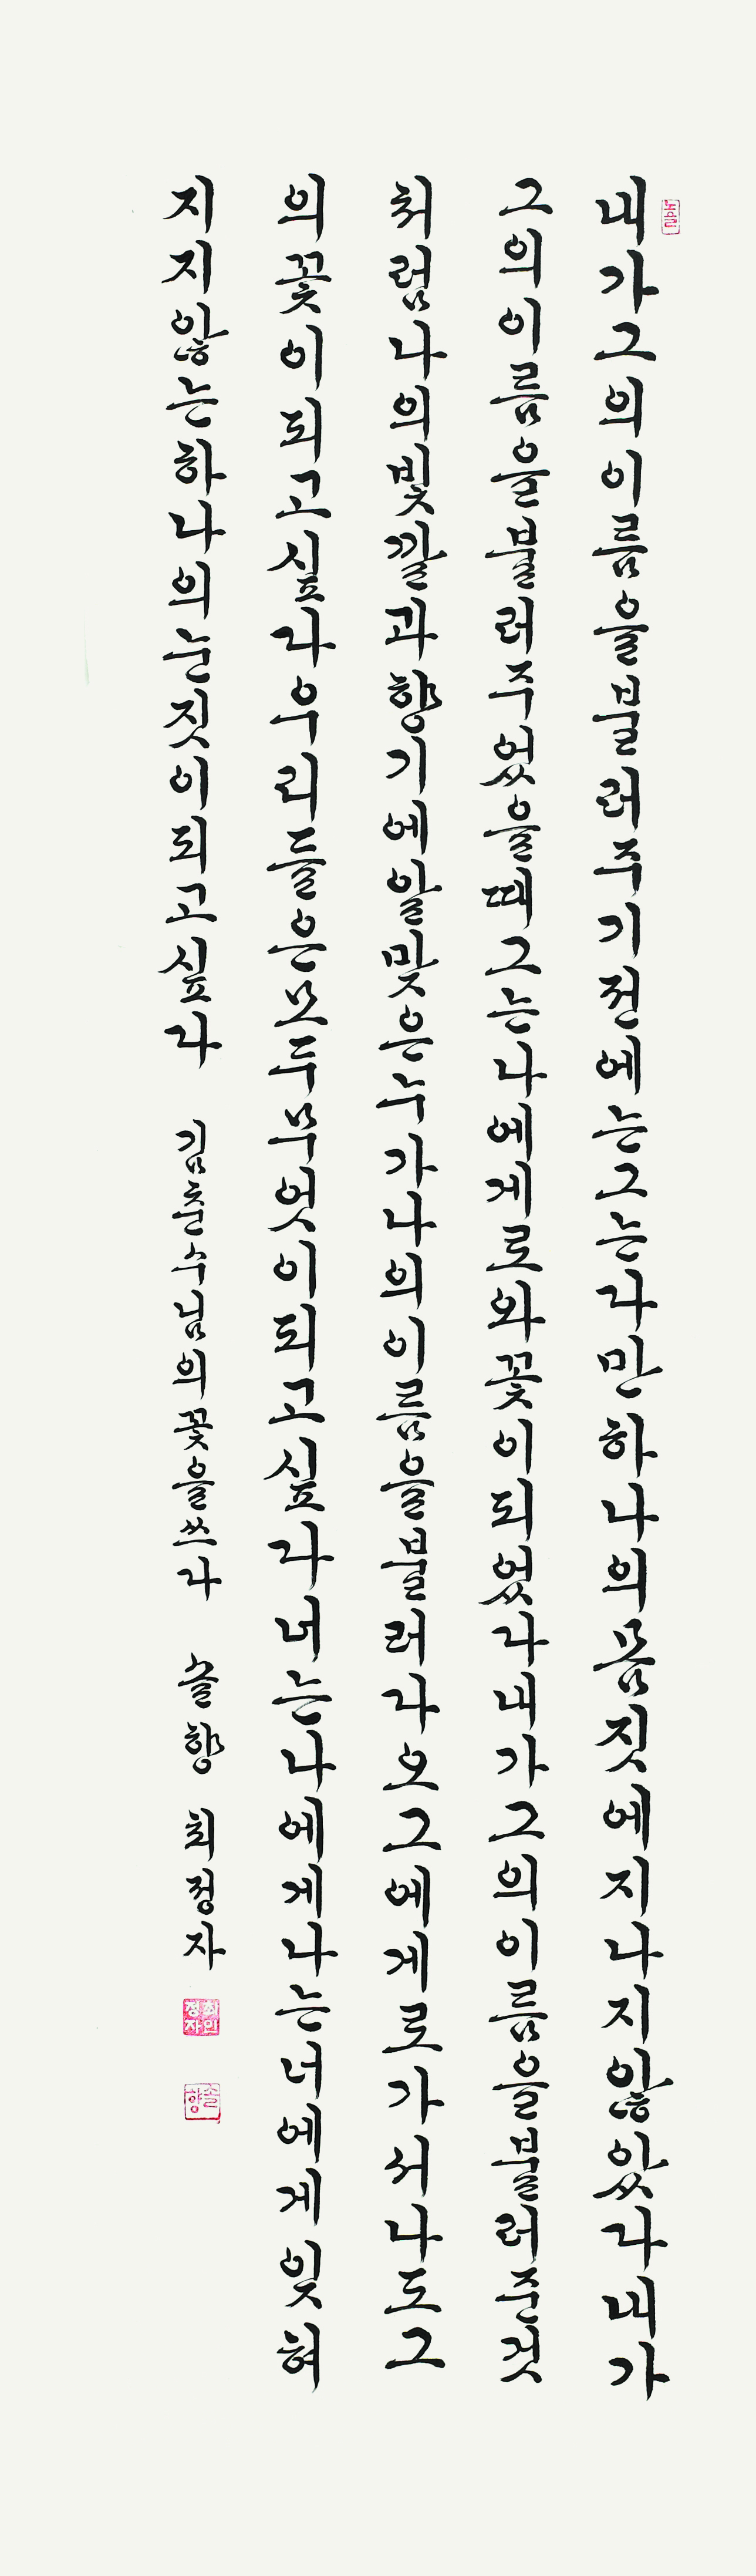 내가그의이름을불러주기전에는그는다만하나의몸짓에지나지않았다내가
그의이름을불러주었을때그는나에게로와꽃이되었다내가그의이름을불러준것
처럼나의빛깔과향기에알맞은누가나의이름을불러다오그에게로가서나도그
의꽃이되고싶다우리들은모두무엇이되고싶다너는나에게나는너에게잊혀
지지않는하나의눈짓이되고싶다 김춘수님의꽃을쓰다 솔향 최정자
최정자인
솔향